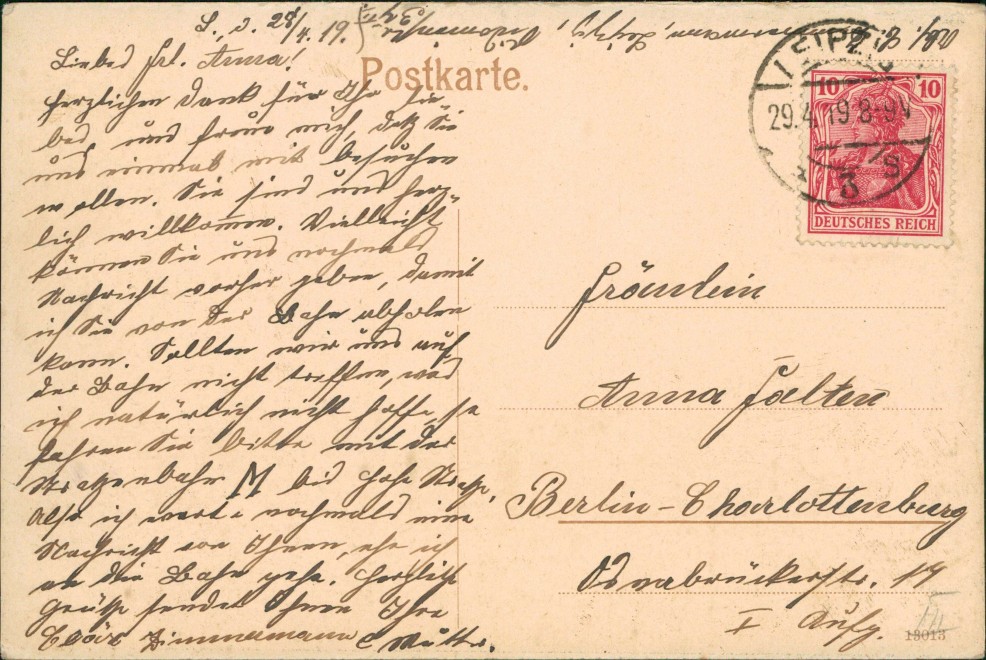 L., d. 28/4. 19.
Postkarte.
Liebes Frl. Anna!
Herzlichen Dank für Ihr lie-
bes, und freue mich, daß Sie
uns einmal mit besuchen
wollen. Sie sind uns herz-
lich willkommen. Vielleicht
können Sie uns nochmals
Nachricht vorher geben, damit
ich Sie von der Bahn abholen
kann. Sollten wir uns auf
der Bahn nicht treffen, was
ich natürlich nicht hoffe, so
fahren Sie bitte mit der
Straßenbahn M bis Hohe Straße.
Also ich warte nochmals eine
Nachricht von Ihnen, ehe ich
an die Bahn gehe. Herzliche
Grüße sendet Ihnen Ihre
Zimmermann & Mutter.
Zimmermann, Leipzig,
LEIPZIG
29.4.19 8-9V
10 10
DEUTSCHES REICH
Fräulein
Anna Falten
Berlin-Charlottenburg
Osnabrückerstr. 17
I Aufg.
III
13013